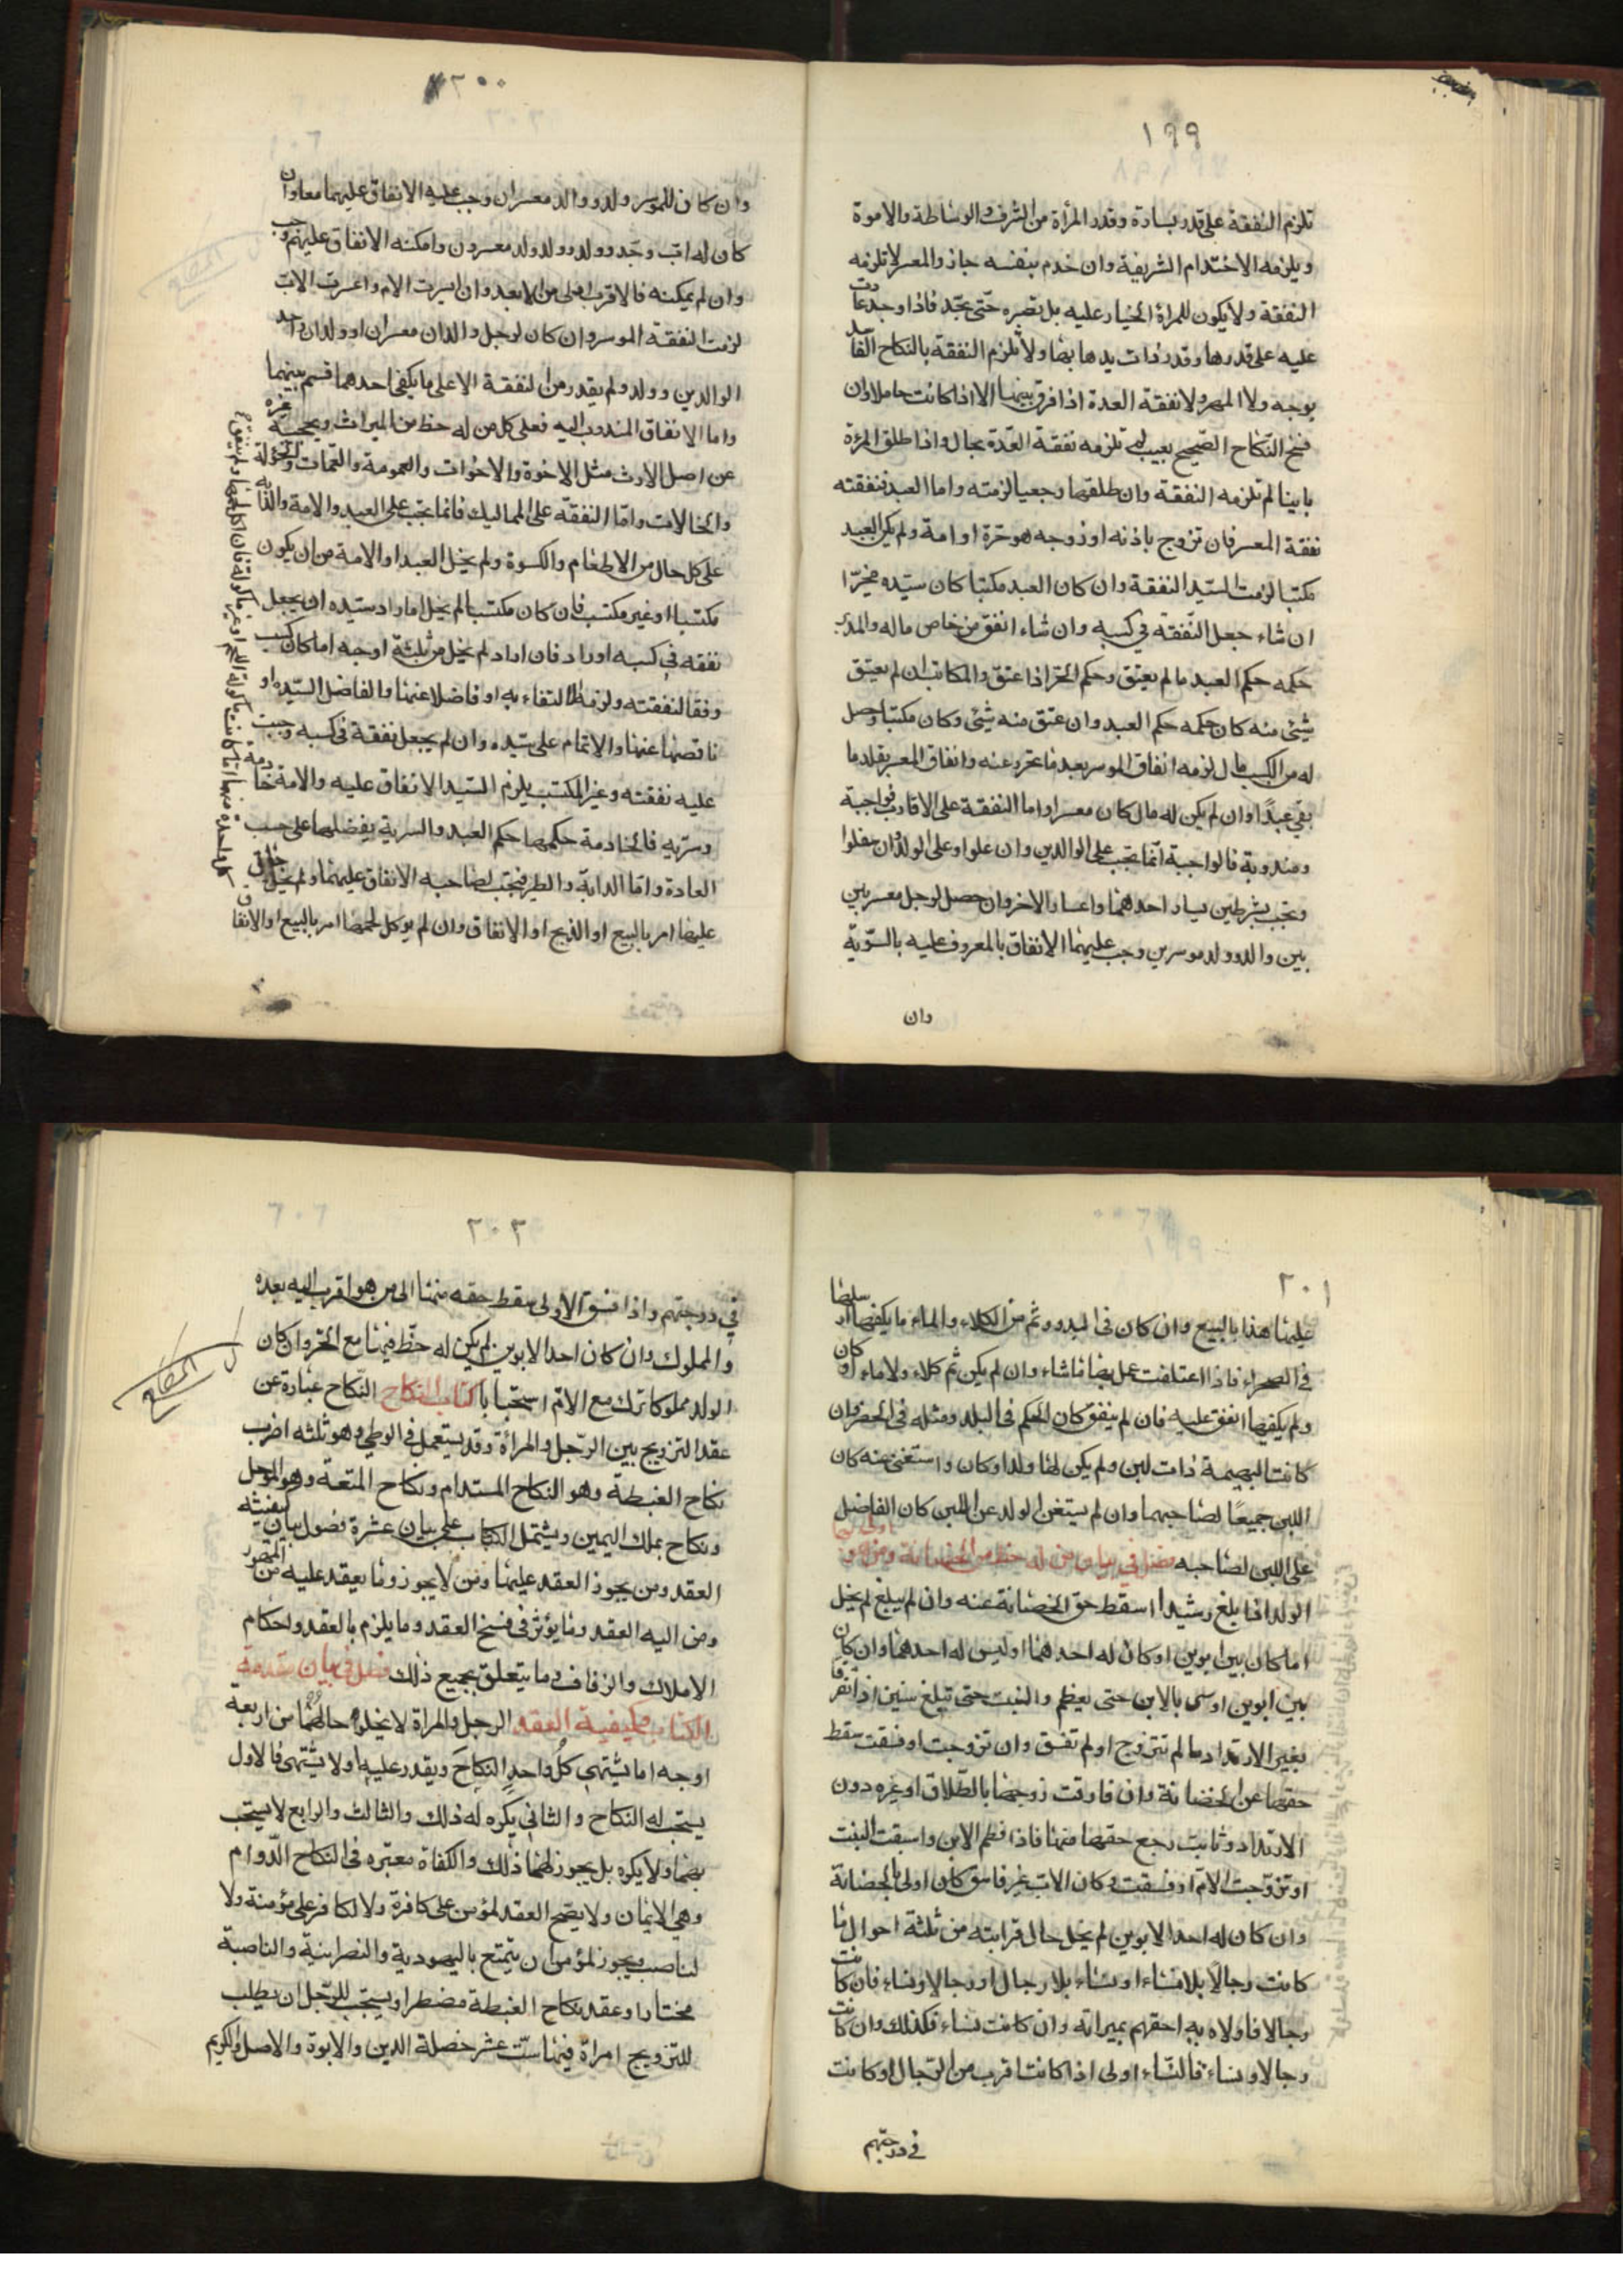 ١٩٩
تلزم النفقة على قدر يساره وقدر المرأة من الشرف والوساطة والاموة
ويلزمه الاختدام الشريفة وان خدم بنفسه جاز والمعسر لا تلزمه
النفقة ولا يكون للمرأة الخيار عليه بل تصبره حتى يجد فاذا وجد عادت
عليه على قدرها وقدر ذات يدها بها ولا تلزم النفقة بالنكاح الفاسد
بوجه ولا المهر ولا نفقة العدة اذا فرق بينهما الا اذا كانت حاملا وان
فسخ النكاح الصحيح بعيب لم تلزمه نفقة العدة بحال واذا طلق المرءة
باينا لم تلزمه النفقة وان طلقها رجعيا لزمته واما العبد فنفقته
نفقة المعسر فان تزوج باذنه او زوجه هو حرة او امة ولم يكن العبد
مكتسبا لزمت السيد النفقة وان كان العبد مكتسبا كان سيده مخيرا
ان شاء جعل النفقة في كسبه وان شاء انفق من خاص ماله والمدبر
حكمه حكم العبد ما لم يعتق وحكم الحر اذا عتق والمكاتب ان لم يعتق
شيئ منه كان حكمه حكم العبد وان عتق منه شيئ وكان مكتسبا وحصل
له من الكسب مال لزمه انفاق الموسر بعد ما تحرر عنه وانفاق المعسر بقدر ما
بقي عبدا وان لم يكن له مال كان معسرا واما النفقة على الاقارب فواجبة
ومندوبة فالواجبة انما تجب على الوالدين وان علوا وعلى الولد وان سفلوا
وتجب بشرطين يسار احدهما واعسار الاخر وان حصل لرجل معسر بين
بين والد وولد موسرين وجب عليهما الانفاق بالمعروف عليه بالسوية
وان
٢٠٠
وان كان للموسر ولد ووالد معسران وجب عليه الانفاق عليهما معا وان
كان له اب وجد وولد وولد ولد معسرون وامكنه الانفاق عليهم وجب
وان لم يمكنه فالاقرب اولى من الابعد وان ايسرت الام واعسرت الاب
لزمت النفقة الموسر وان كان لرجل والدان معسران او ولدان واحد
الوالدين وولد ولم يقدر من النفقة الا على ما يكفي احدهما قسم بينهما
واما الانفاق المندوب اليه فعلى كل من له حظ من الميراث ويحجبه غيره
عن اصل الارث مثل الاخوة والاخوات والعمومة والعمات والخؤلة
والخالات واما النفقة على المماليك فانما تجب على العبد والامة والدابة
على كل حال من الاطعام والكسوة ولم يخل العبد او الامة من ان يكون
مكتسبا او غير مكتسب فان كان مكتسبا لم يخل اما راد سيده ان يجعل
نفقه في كسبه او راد فان اراد لم يخل من ثلثة اوجه اما كان كسب
وفقا لنفقته ولزمه الاكتفاء به او فاضلا عنها والفاضل للسيد او
ناقصها عنها والاتمام على سيده وان لم يجعل نفقة في كسبه وجبت
عليه نفقته وغير المكتسب يلزم السيد الانفاق عليه والامة خادمة
وسرية فالخادمة حكمها حكم العبد والسرية يفضلها على حسب
العادة واما الدابة والطير فتجب لصاحبه الانفاق عليهما ولم يخل
عليها امر بالبيع او الذبح او الانفاق وان لم يوكل لحمها امر بالبيع او الانفاق
٢٠١
عليها هذا بالبيع وان كان في البدو وثم من الكلاء والماء ما يكفيها ارسلها
في الصحراء فاذا اعتلفت عمل بها ما شاء وان لم يكن ثم كلاء ولا ماء او كان
ولم يكفيها انفق عليه فان لم ينفق كان الحكم في البلد ومثله في الحضر وان
كانت البهيمة ذات لبن ولم يكن لها ولد او كان واستغنى عنه كان
اللبن جميعا لصاحبهما وان لم يستغن الولد عن اللبن كان الفاضل
على اللبن لصاحبه فصل في بيان من له حظ من الحضانة ومن هو اولى بها
الولد اذا بلغ رشيدا اسقط حق الحضانة عنه وان لم يبلغ لم يخل
اما كان بين ابوين او كان له احدهما او ليس له احدهما وان كان
بين ابوين اوسى بالابن حتى يعظم والبنت حتى تبلغ سنين اذا انفرقا
بغير الارتداد ما لم تتزوج او لم تفسق وان تزوجت او فسقت سقط
حقها عن الحضانة وان فارقت زوجها بالطلاق او غيره دون
الارتداد وثابت رجع حقها منها فاذا فطم الابن واسبقت البنت
او تزوجت الام او فسقت وكان الاب غير فاسق كان اولى بالحضانة
وان كان له احد الابوين لم يخل حال قرابته من ثلثة احوال ما
كانت رجالا بلا نساء او نساء بلا رجال او رجالا ونساء فان كانت
رجالا فاولاه به احقهم بميراثه وان كانت نساء فكذلك وان كانت
رجالا ونساء فالنساء اولى اذا كانت اقرب من الرجال او كانت
في درجتهم
٢٠٢
في درجتهم واذا فسق الاولى سقط حقه منها الى من هو اقرب اليه بعده
والمملوك وان كان احد الابوين لم يكن له حظ فيها مع الحر وان كان
الولد مملوكا ترك مع الام استحبابا كتاب النكاح النكاح عبارة عن
عقد التزويج بين الرجل والمرأة وقد يستعمل في الوطي وهو ثلثه اضرب
نكاح الغبطة وهو النكاح المستدام ونكاح المتعة وهو المؤجل
ونكاح بملك اليمين ويشتمل الكتاب على بيان عشرة فصول بيان كيفيته
العقد ومن يجوز العقد عليها ومن لا يجوز وما يعقد عليه من المهور
ومن اليه العقد وما يؤثر في فسخ العقد وما يلزم بالعقد واحكام
الاملاك والزفاف وما يتعلق بجميع ذلك فصل في بيان مقدمة
الكتاب وكيفية العقد الرجل والمراة لا يخلو حالهما من اربعة
اوجه اما يشتهي كل واحد النكاح ويقدر عليه او لا يشتهى فالاول
يستحب له النكاح والثاني يكره له ذلك والثالث والرابع لا يستحب
بهما ولا يكره بل يجوز لهما ذلك والكفاة معتبره في النكاح الدوام
وهي الايمان ولا يصح العقد لمؤمن على كافرة ولا لكافر على مؤمنة ولا
لناصب ويجوز لمؤمن ان يتمتع باليهودية والنصرانية والناصبة
مختارا وعقد نكاح الغبطة مضطرا ويستحب للرجل ان يطلب
للتزويج امراة فيها ست عشر خصلة الدين والابوة والاصل والكريم